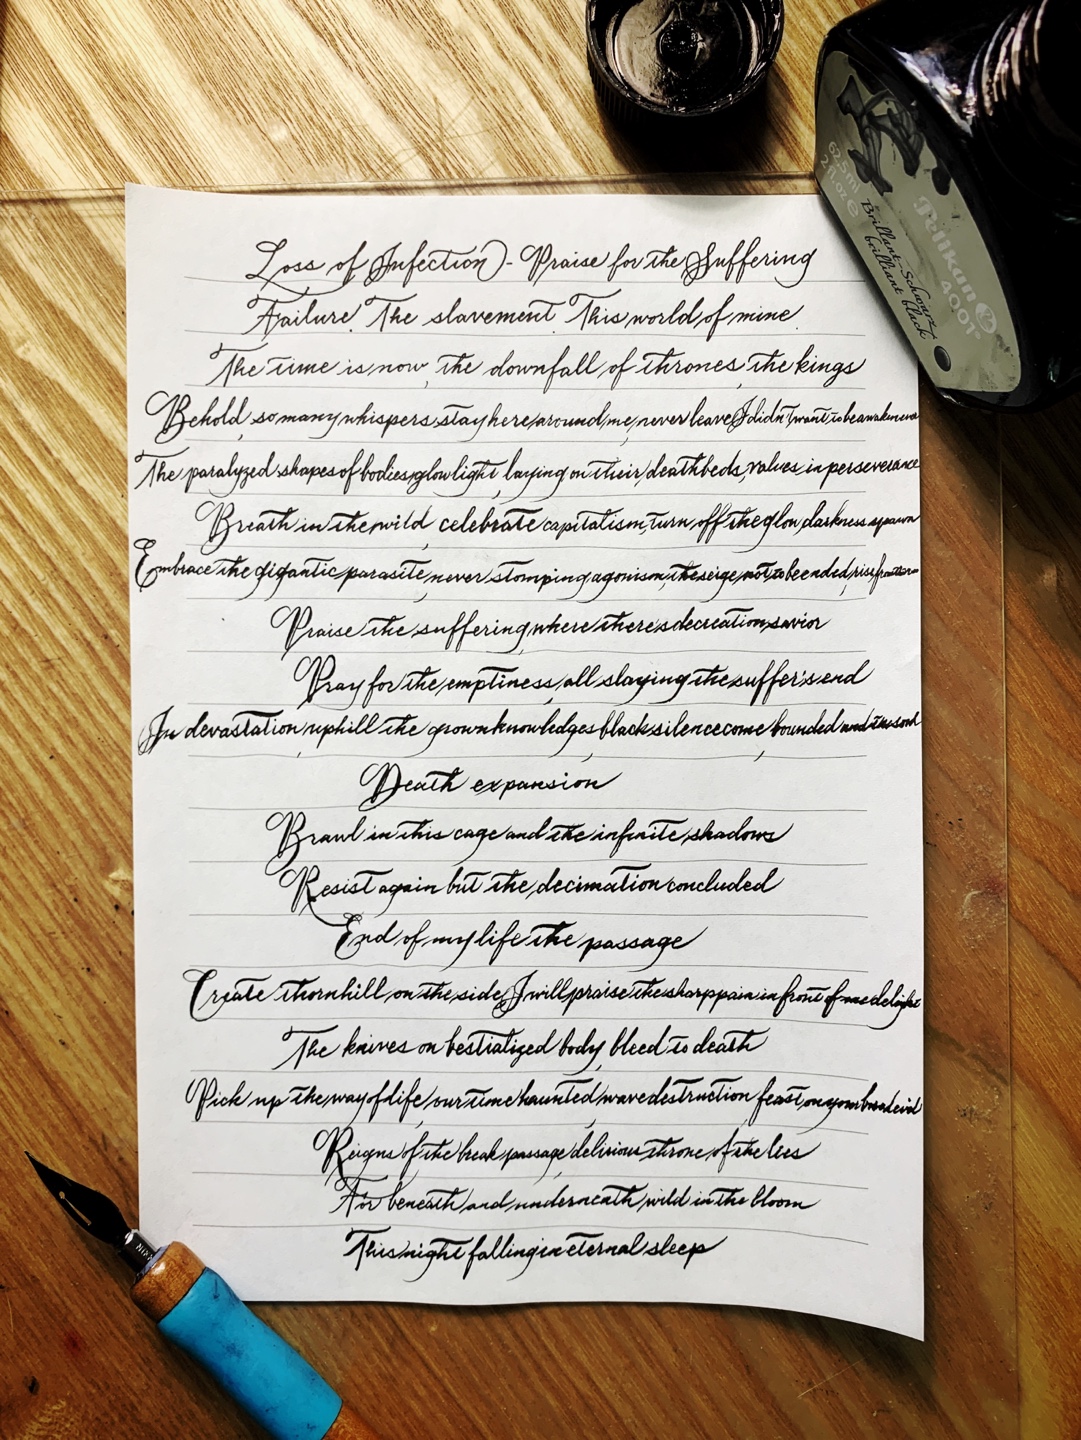 62.5 ml
2 fl.oz e
Pelikan
4001
Brillant-Schwarz
brilliant black
Loss of Infection - Praise for the Suffering
Failure, The slavement, This world of mine
The time is now, the downfall of thrones, the kings
Behold, so many whispers, stay here, around me, never leave, I didn't want to be awaken
The paralyzed shapes of bodies, glow light, laying on their deathbeds, values in perseverance
Breath in the wild, celebrate capitalism, turn off the glow, darkness spawn
Embrace the gigantic parasite, never stomping agonism, the seige, not to be ended, rise
Praise the suffering, where there's decreation, savior
Pray for the emptiness, all slaying the suffer's end
In devastation, uphill the grown knowledges, black silence come, bounded and the soul
Death expansion
Brawl in this cage and the infinite shadows
Resist again but the decimation concluded
End of my life the passage
Create thornhill, on the side, I will praise the sharp pain in front of me delight
The knives on bestialized body, bleed to death
Pick up the way of life, our time haunted, wave destruction, feast on your
Reigns of the break passage, delirious throne of the lies
Far beneath and underneath, wild in the bloom
This night falling in eternal sleep